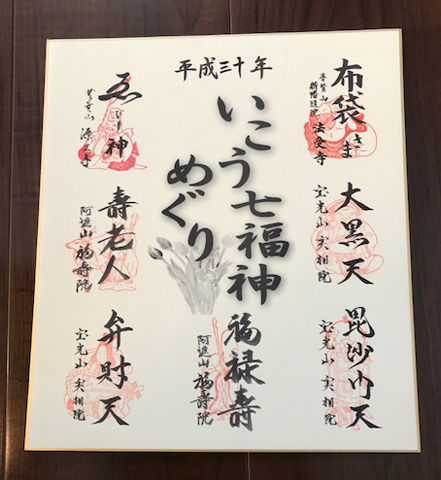 平成三十年
いこう七福神
めぐり
布袋さま
法受寺
大黒天
宝光山 実相院
毘沙门天
宝光山 実相院
福禄寿
阿遮山 福寿院
ゑびす神
源正寺
壽老人
阿遮山 福寿院
弁財天
宝光山 実相院